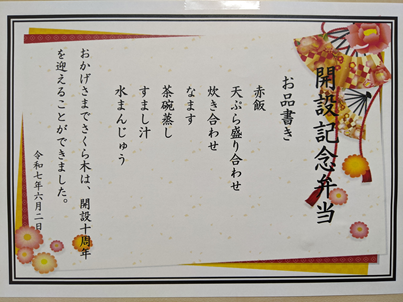 開設記念弁当
お品書き
赤飯
天ぷら盛り合わせ
炊き合わせ
なます
茶碗蒸し
すまし汁
水まんじゅう
おかげさまでさくら木は、開設十周年
を迎えることができました。
令和七年六月二日